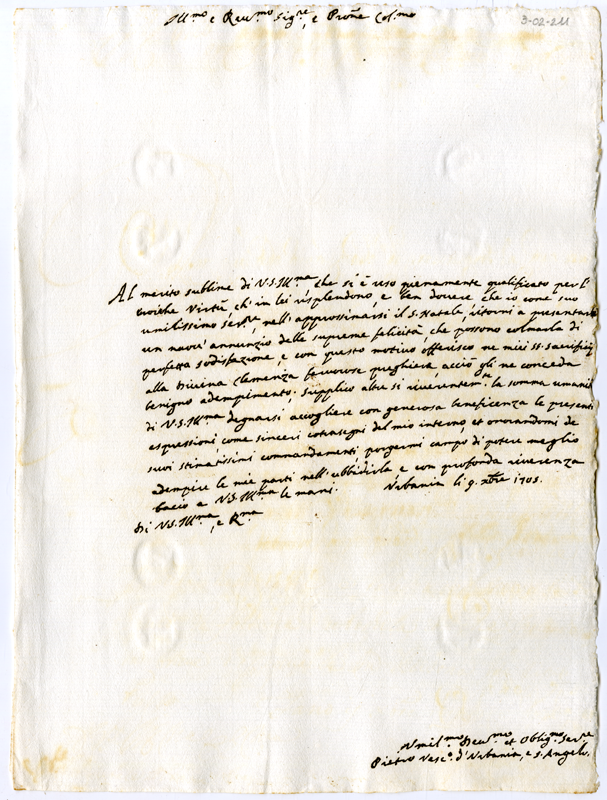 Ill.mo e Rev.mo Sig.re, e Pròne Col.mo
3-02-211
Al merito sublime di V.S.Ill.ma che si è reso pienamente qualificato per l'
eroiche Virtù, ch'in lei risplendono, è ben dovere che io come suo
umilissimo ser.re, nell'approssimarsi il S. Natale, ritorni a presentarle
un nuovo annunzio delle supreme felicità, che possono colmarla di
perfetta sodisfazione, e con questo motivo offerisco ne miei SS. Sacrifizij
alla Divina Clemenza fervorose preghiere, acciò gli ne conceda
benigno adempimento; Supplico altresì riverentem.te la somma umanità
di V.S.Ill.ma degnarsi accogliere con generosa beneficenza le presenti
espressioni come sinceri contrasegni del mio interno, et onorandomi de
suoi stimatissimi commandamenti porgermi campo di potere meglio
adempire le mie parti nell'ubbidirla, e con profonda riverenza
bacio a V.S.Ill.ma le mani. Urbania li 9. Xbre 1703.
Di V.S.Ill.ma, e R.ma
Umil.mo Dev.mo et Oblig.mo Ser.re
Pietro Vesc.o d'Urbania, e S. Angelo.